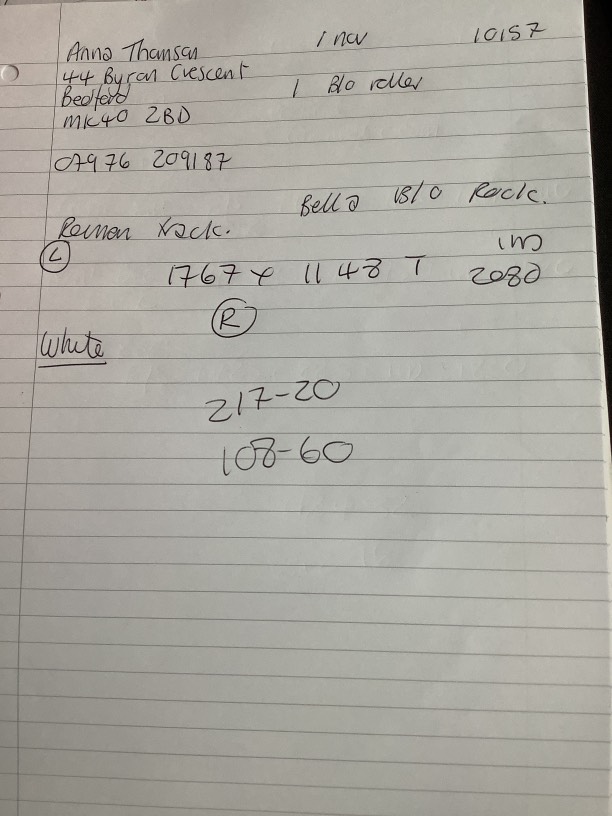 Anna Thomson 1 nov 10157
44 Byron Crescent
Bedford 1 B/O roller
MK40 2BD
07976 209187
Bella B/O Rock.
Remen Rock.
(L) IM
1767 x 1148 T 2080
(R)
White
217-20
108-60